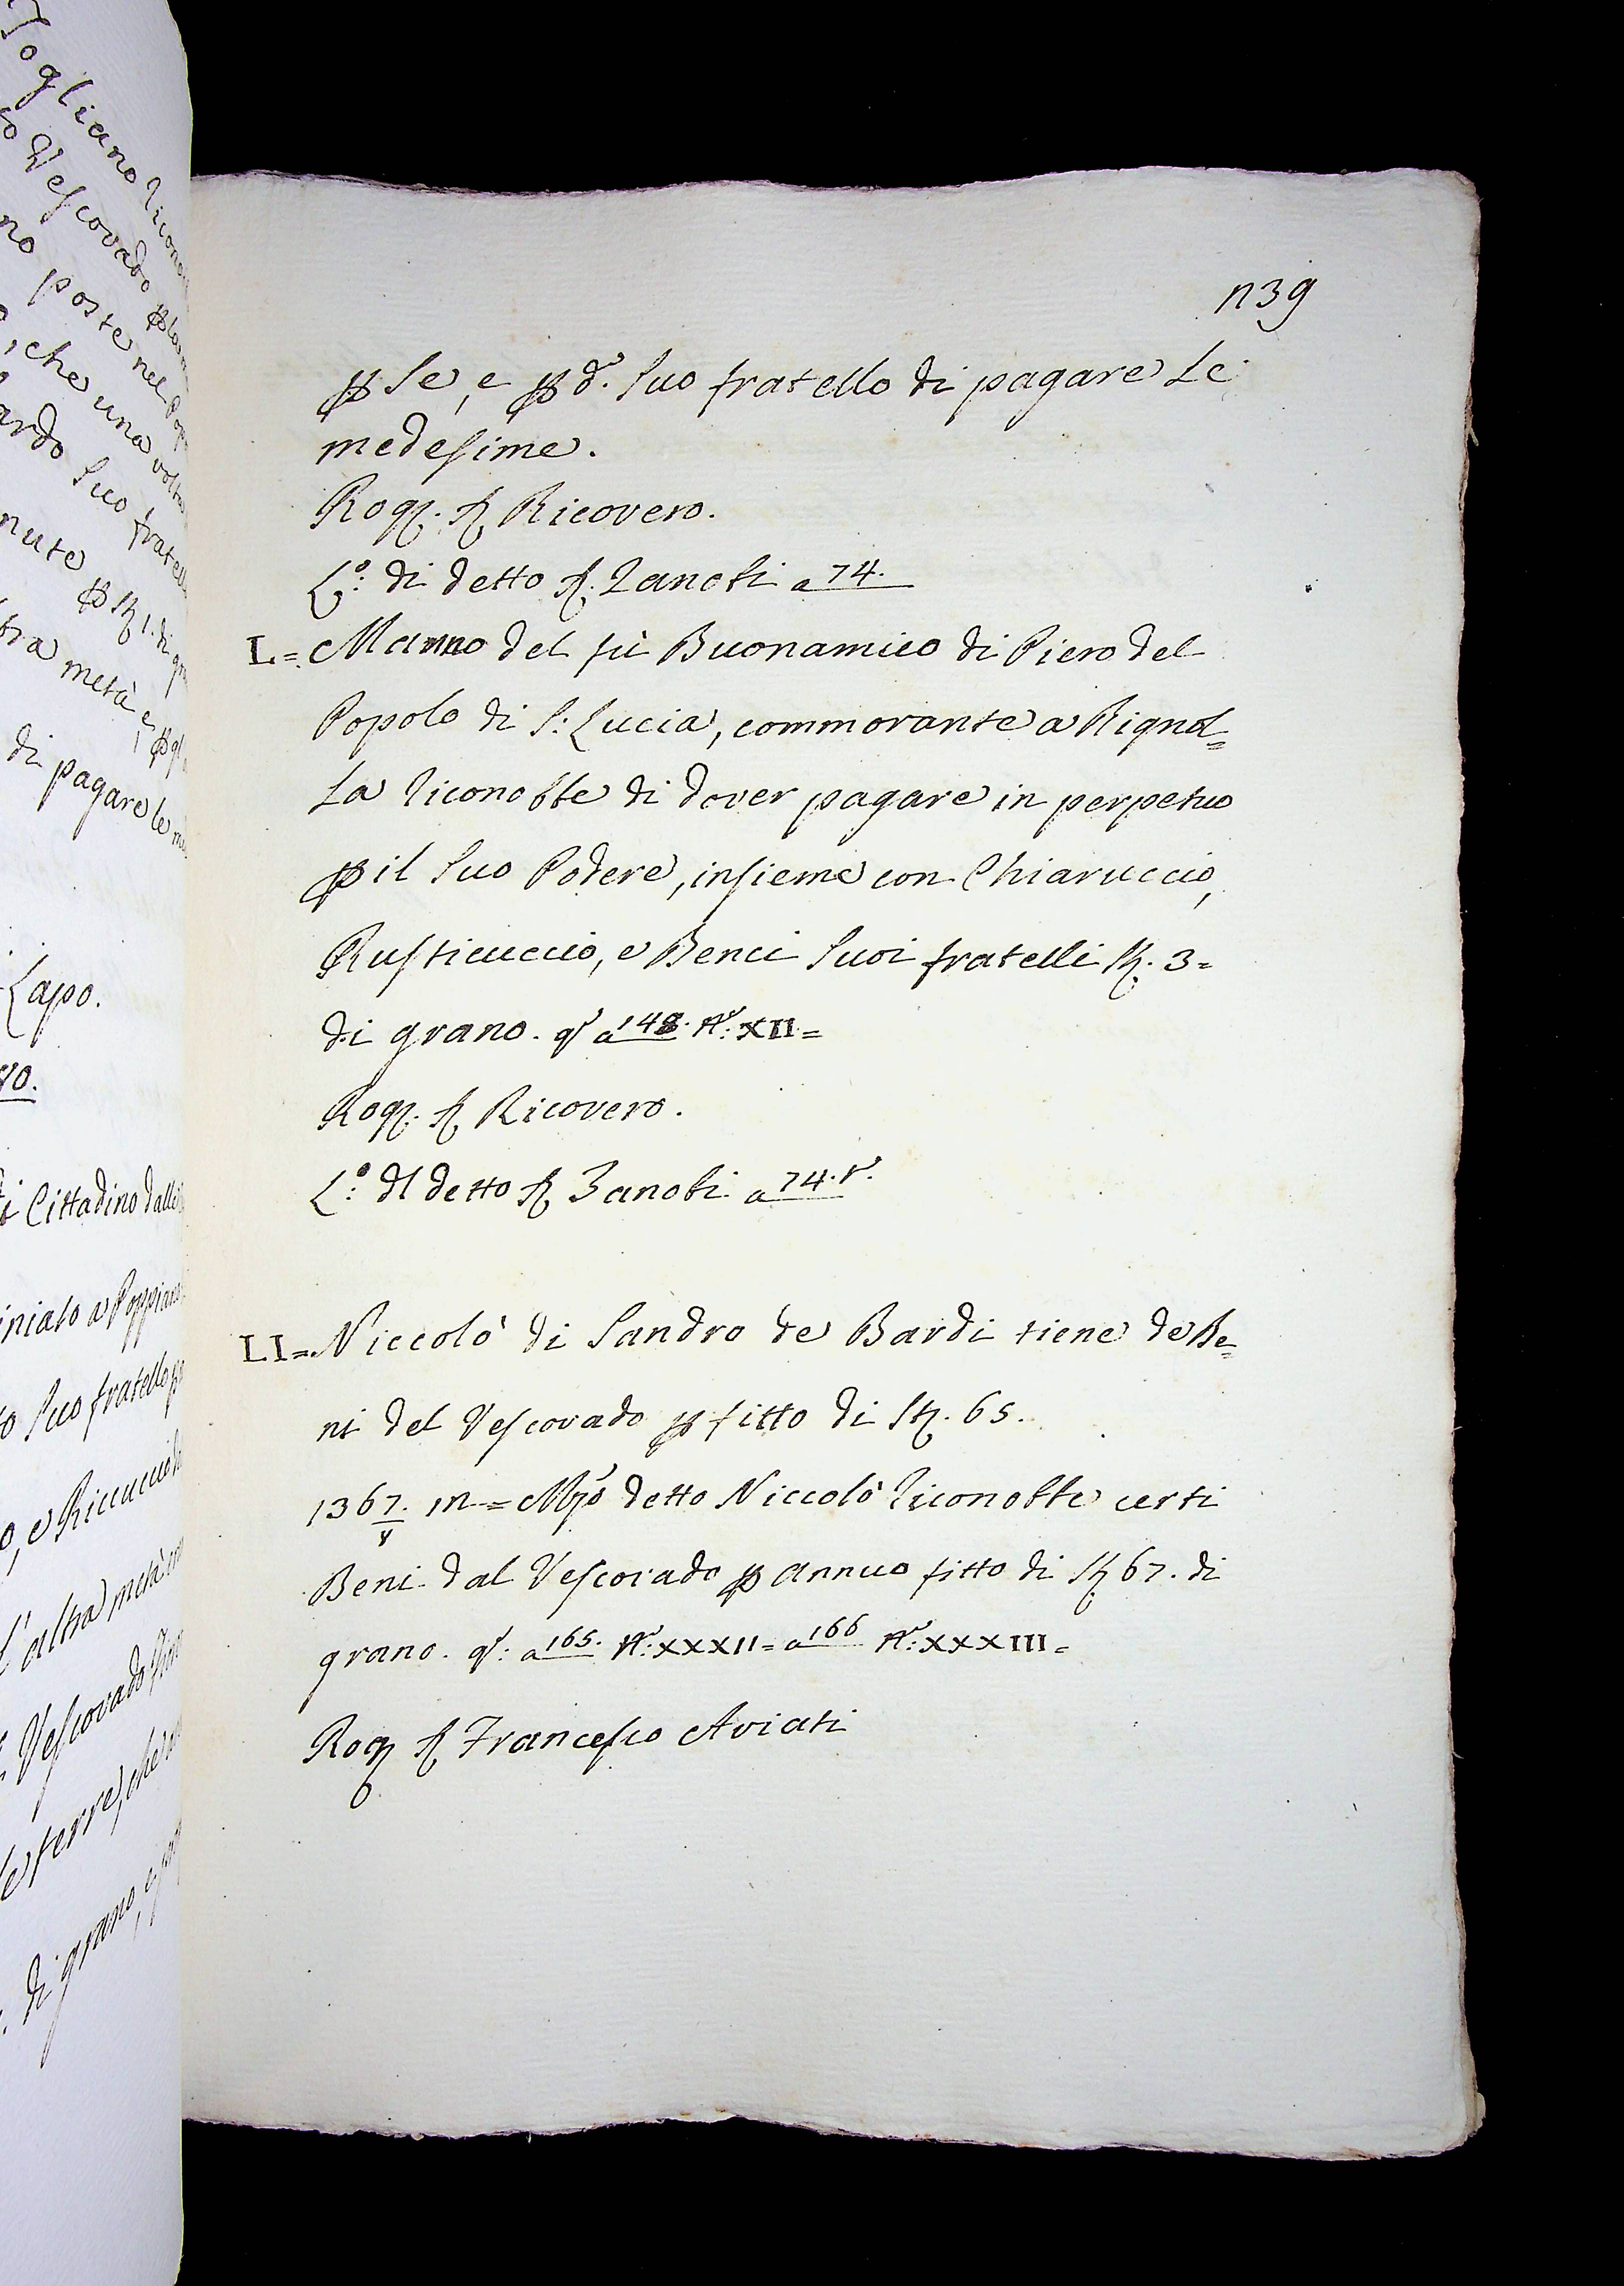 1139
p Se, e p d.º Suo fratello di pagare Le
medesime.
Rog. S. Ricovero.
L.º: di detto S. Zanobi a 74.
L.= Manno del fù Buonamico di Piero del
Popolo di S: Lucia, commorante a Rignol=
La riconobbe di dover pagare in perpetuo
p il Suo Podere, insieme con Chiaruccio,
Rusticuccio, e Benci Suoi fratelli St. 3=
di grano. q.º a 148. N.º: XII=
Rog. S. Ricovero.
L.º: dl detto S. Zanobi a 74. t.º
LI= Niccolò di Sandro de Bardi tiene de Be=
ni del Vescovado p fitto di St. 65.
1367. m= detto Niccolò riconobbe certi
Beni dal Vescovado p annuo fitto di St 67. di
grano. q.º: a 165. N.º: XXXII= a 166 N.º: XXXIII=
Rog S Francesco Aviati
Togliano
Vescovado
no poste nel
, che una volta
ardo Suo
nute p St 1. di
metà e, p
di pagare le
Lapo.
Cittadino dalli
iniato a Poppiano
Suo fratello
, e Riccuccio
L'altra metà
Vescovado
le terre, che
. di grano, e